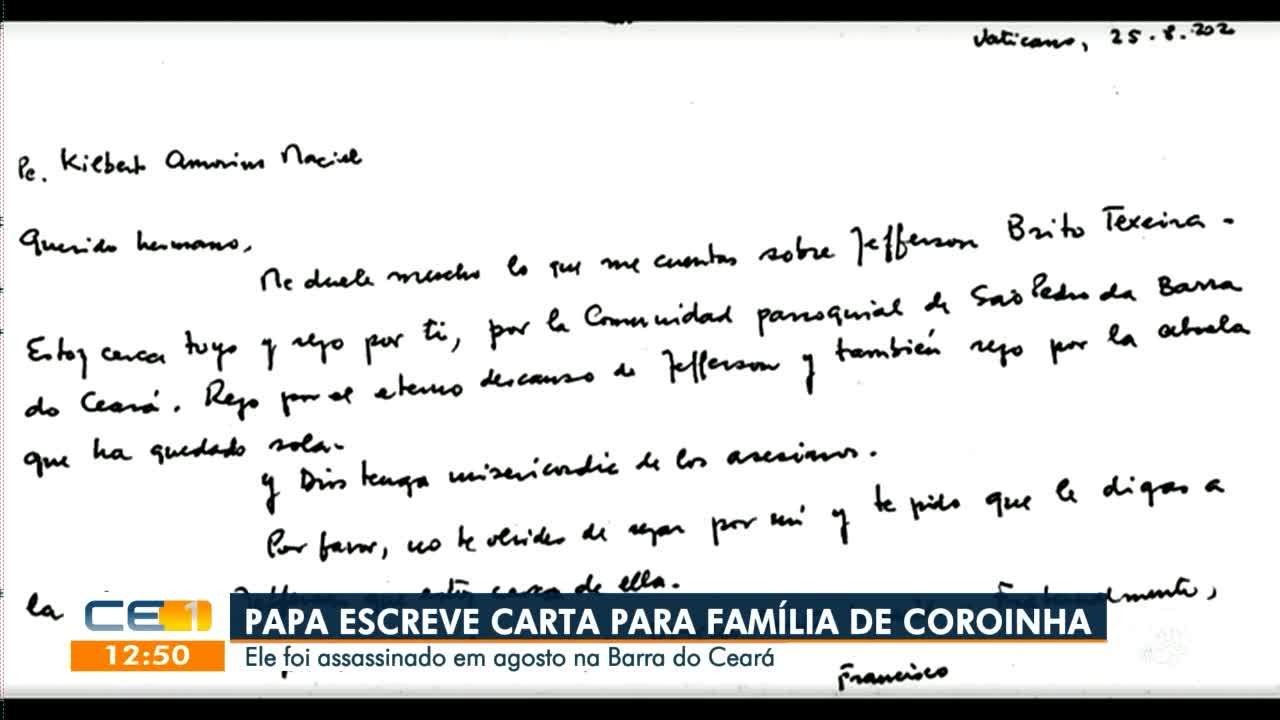 Vaticano, 25.8.202
Pe. Kilbert Amorim Maciel
Querido hermano,
Me duele mucho lo que me cuentas sobre Jefferson Brito Texeira.
Estoy cerca tuyo y rezo por ti, por la Comunidad parroquial de São Pedro da Barra
do Ceará. Rezo por el eterno descanso de Jefferson y también rezo por la abuela
que ha quedado sola.
y Dios tenga misericordia de los asesinos.
Por favor, no te olvides de rezar por mí y te pido que le digas a
la que estoy cerca de ella.
Fraternalmente,
Francisco
CE1
12:50
PAPA ESCREVE CARTA PARA FAMÍLIA DE COROINHA
Ele foi assassinado em agosto na Barra do Ceará